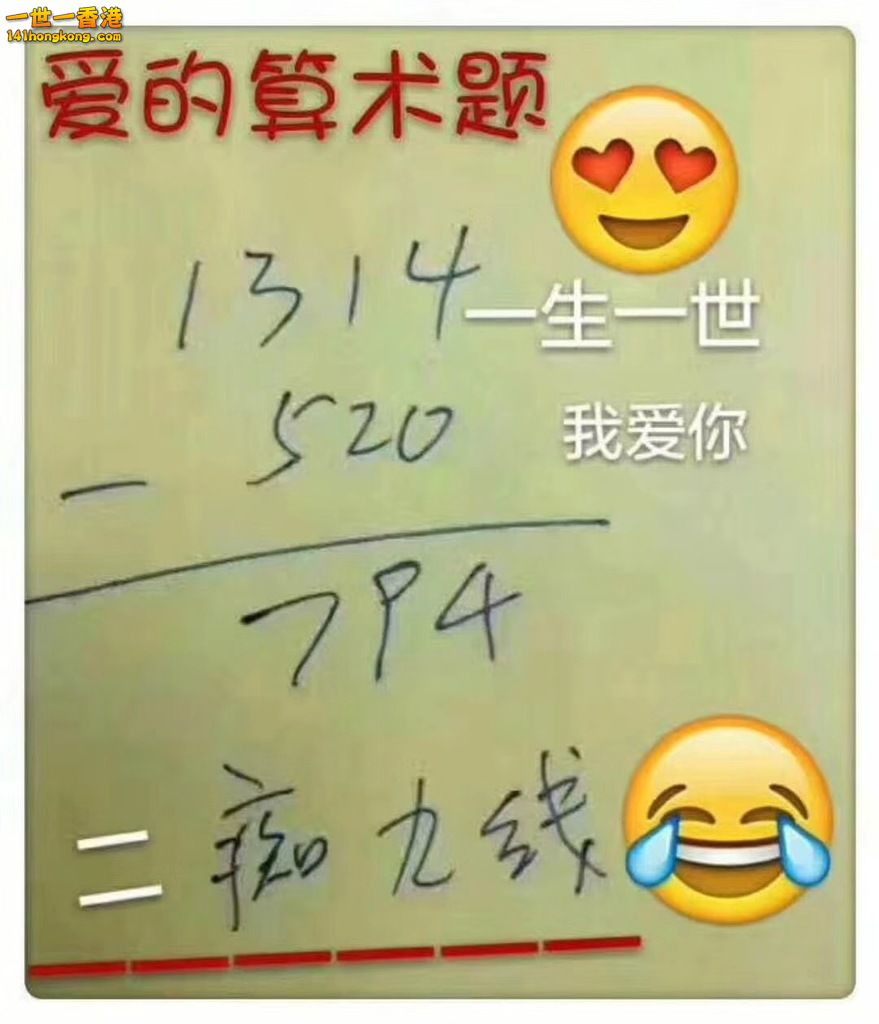 一世一香港
141hongkong.com
爱的算术题
1314
一生一世
520
我爱你
—
794
= 痴九线